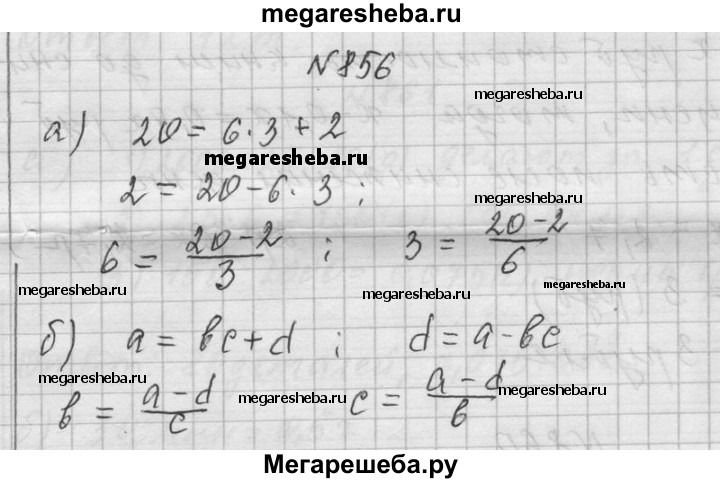 megaresheba.ru
N 856
megaresheba.ru
megaresheba.ru
а) 20 = 6 · 3 + 2
megaresheba.ru
2 = 20 - 6 · 3 ;
megaresheba.ru
6 = (20 - 2)/3 ; 3 = (20 - 2)/6
megaresheba.ru
megaresheba.ru
megaresheba.ru
б) a = bc + d ; d = a - bc
megaresheba.ru
megaresheba.ru
megaresheba.ru
b = (a - d)/c c = (a - d)/b
Мегарешеба.ру